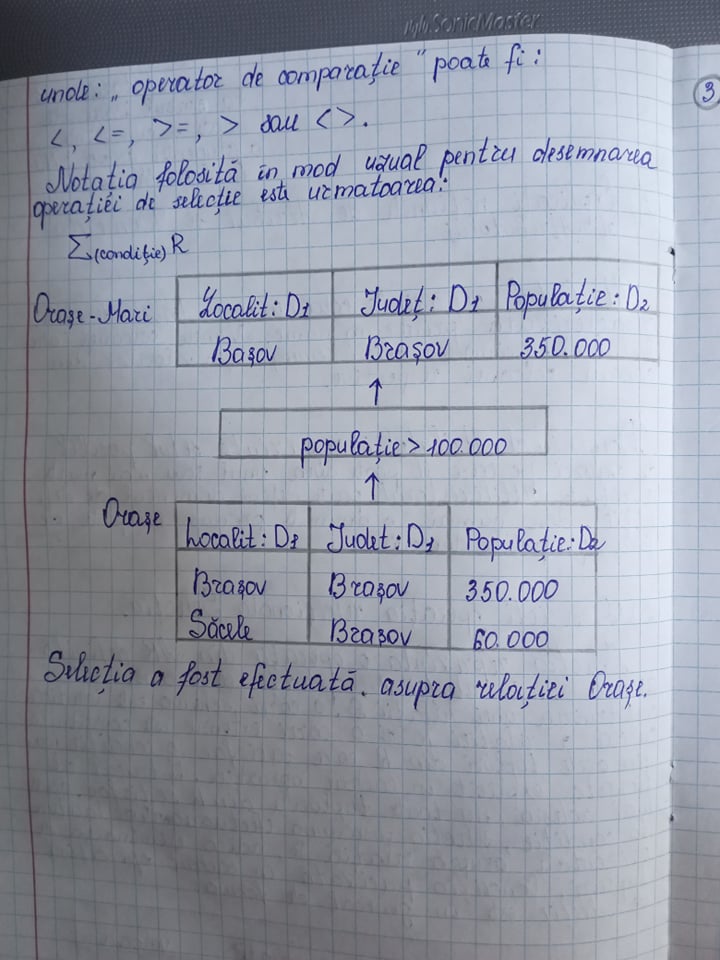 SonicMaster
unde: „ operator de comparație " poate fi :
<, <=, >=, > sau <>.
Notația folosită în mod uzual pentru desemnarea
operației de selecție este urmatoarea:
Σ(condiție) R
3
Orașe-Mari
Localit: D1 Județ: D1 Populație: D2
Bașov Brașov 350.000
↑
populație > 100.000
↑
Orașe
Localit: D1 Județ: D1 Populație: D2
Brașov Brașov 350.000
Săcele Brașov 60.000
Selecția a fost efectuată. asupra relației Orașe.